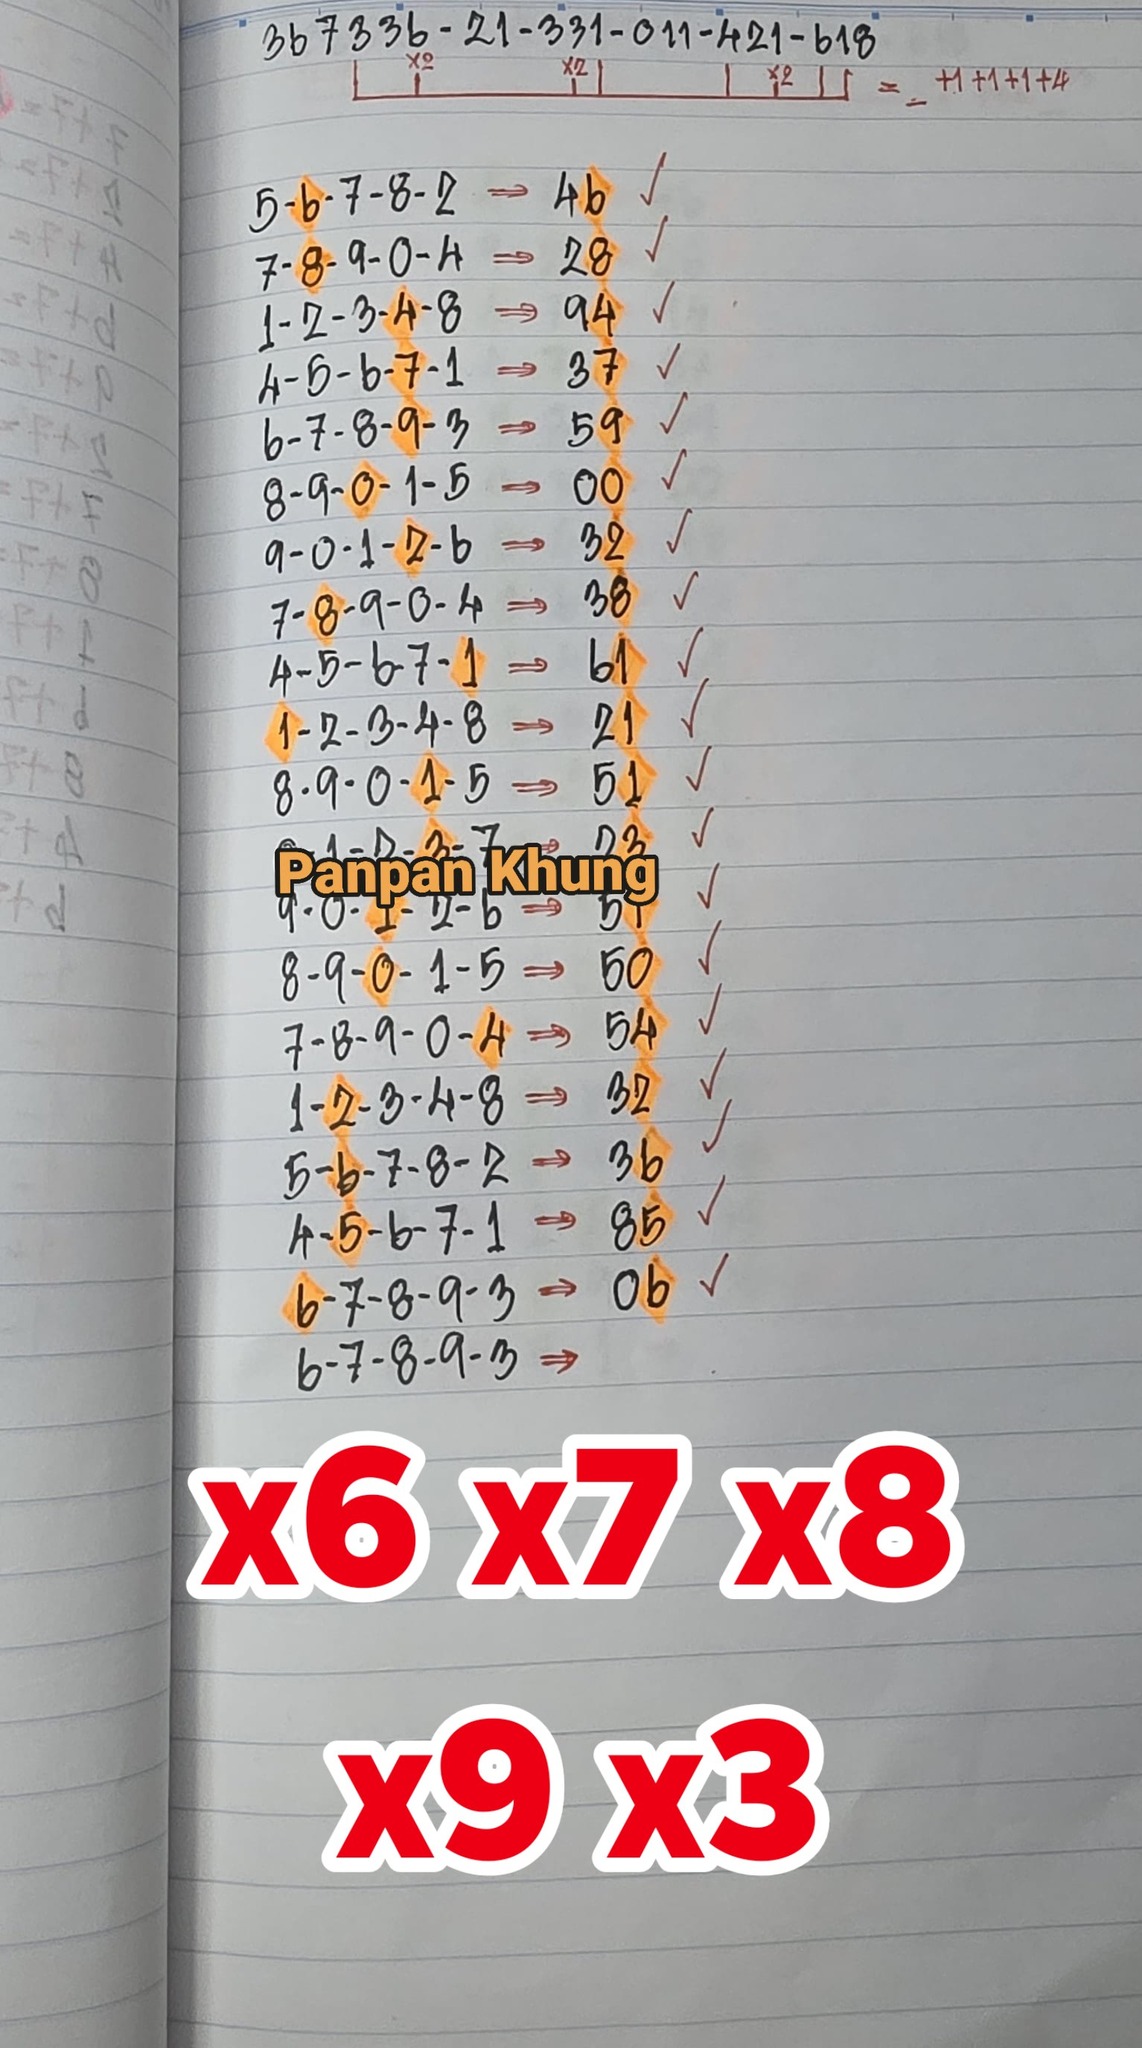 367336-21-331-011-421-618
x2 x2 x2 = - +1+1+1+4
5-6-7-8-2 ⇒ 46 ✓
7-8-9-0-4 ⇒ 28 ✓
1-2-3-4-8 ⇒ 94 ✓
4-5-6-7-1 ⇒ 37 ✓
6-7-8-9-3 ⇒ 59 ✓
8-9-0-1-5 ⇒ 00 ✓
9-0-1-2-6 ⇒ 32 ✓
7-8-9-0-4 ⇒ 38 ✓
4-5-6-7-1 ⇒ 61 ✓
1-2-3-4-8 ⇒ 21 ✓
8-9-0-1-5 ⇒ 51 ✓
1-2-3-7 ⇒ 23 ✓
Panpan Khung
9-0-1-2-6 ⇒ 51 ✓
8-9-0-1-5 ⇒ 50 ✓
7-8-9-0-4 ⇒ 54 ✓
1-2-3-4-8 ⇒ 32 ✓
5-6-7-8-2 ⇒ 36 ✓
4-5-6-7-1 ⇒ 85 ✓
6-7-8-9-3 ⇒ 06 ✓
6-7-8-9-3 ⇒
x6 x7 x8
x9 x3